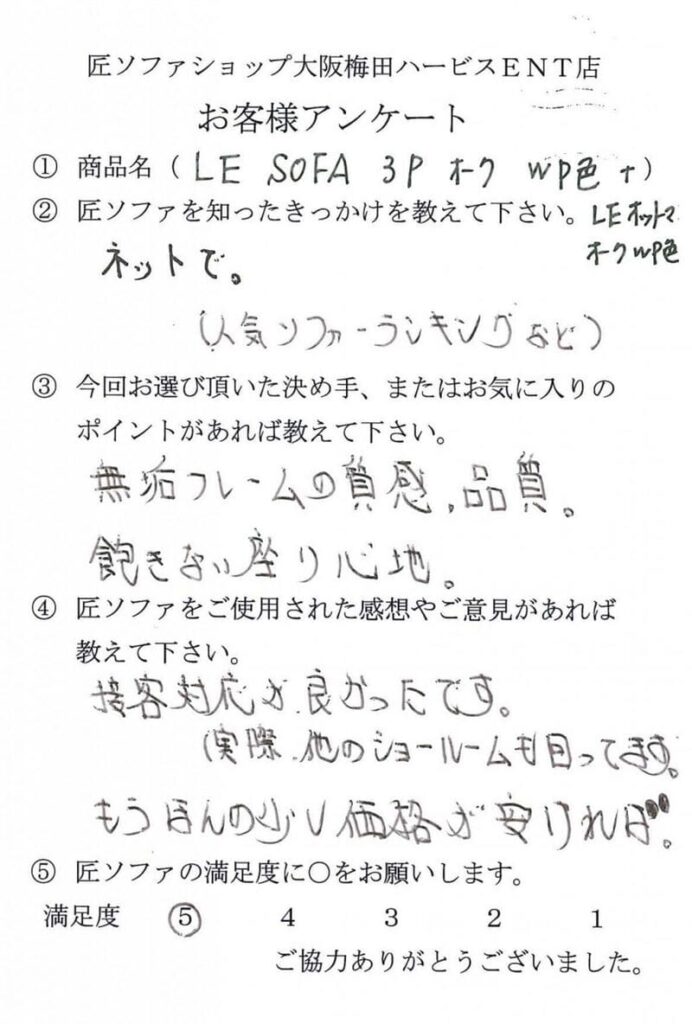 匠ソファショップ大阪梅田ハービスＥＮＴ店
お客様アンケート
① 商品名（ LE SOFA 3P オーク WP色 + ）
② 匠ソファを知ったきっかけを教えて下さい。 LEオットマ
オークWP色
ネットで。
（人気ソファーランキングなど）
③ 今回お選び頂いた決め手、またはお気に入りの
ポイントがあれば教えて下さい。
無垢フレームの質感,品質。
飽きない座り心地。
④ 匠ソファをご使用された感想やご意見があれば
教えて下さい。
接客対応が良かったです。
（実際、他のショールームも回ってます。
もうほんの少し価格が安ければ。
⑤ 匠ソファの満足度に〇をお願いします。
満足度 ⑤ 4 3 2 1
ご協力ありがとうございました。